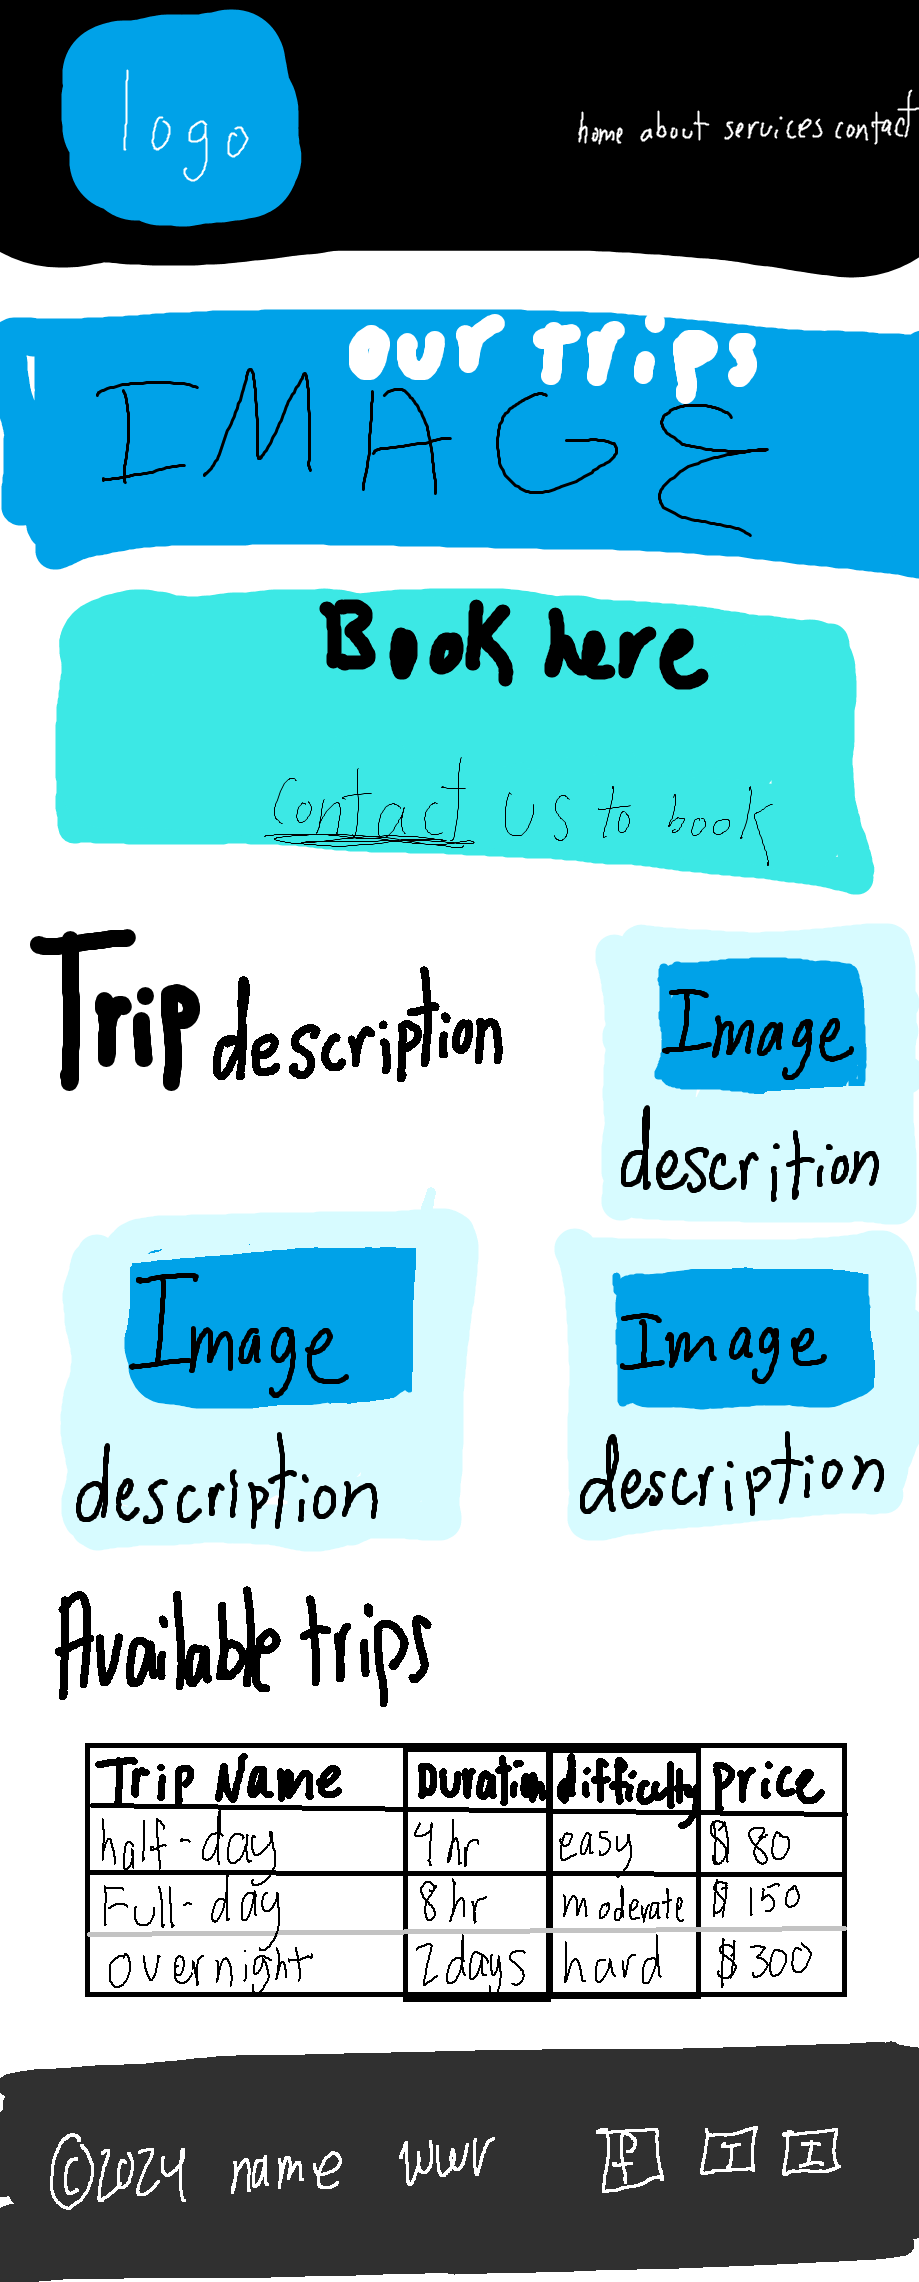 logo
home about services contact
our Trips
IMAGE
Book here
contact us to book
Trip description
Image
descrition
Image
description
Image
description
Available trips
Trip Name Duration difficulty price
half-day 4hr easy $ 80
Full-day 8hr moderate $ 150
overnight 2days hard $ 300
©2024 name wwr f I I